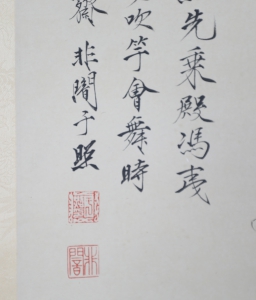 先乘殿馮夷
吹竽會舞時
齋非闇于照
非闇